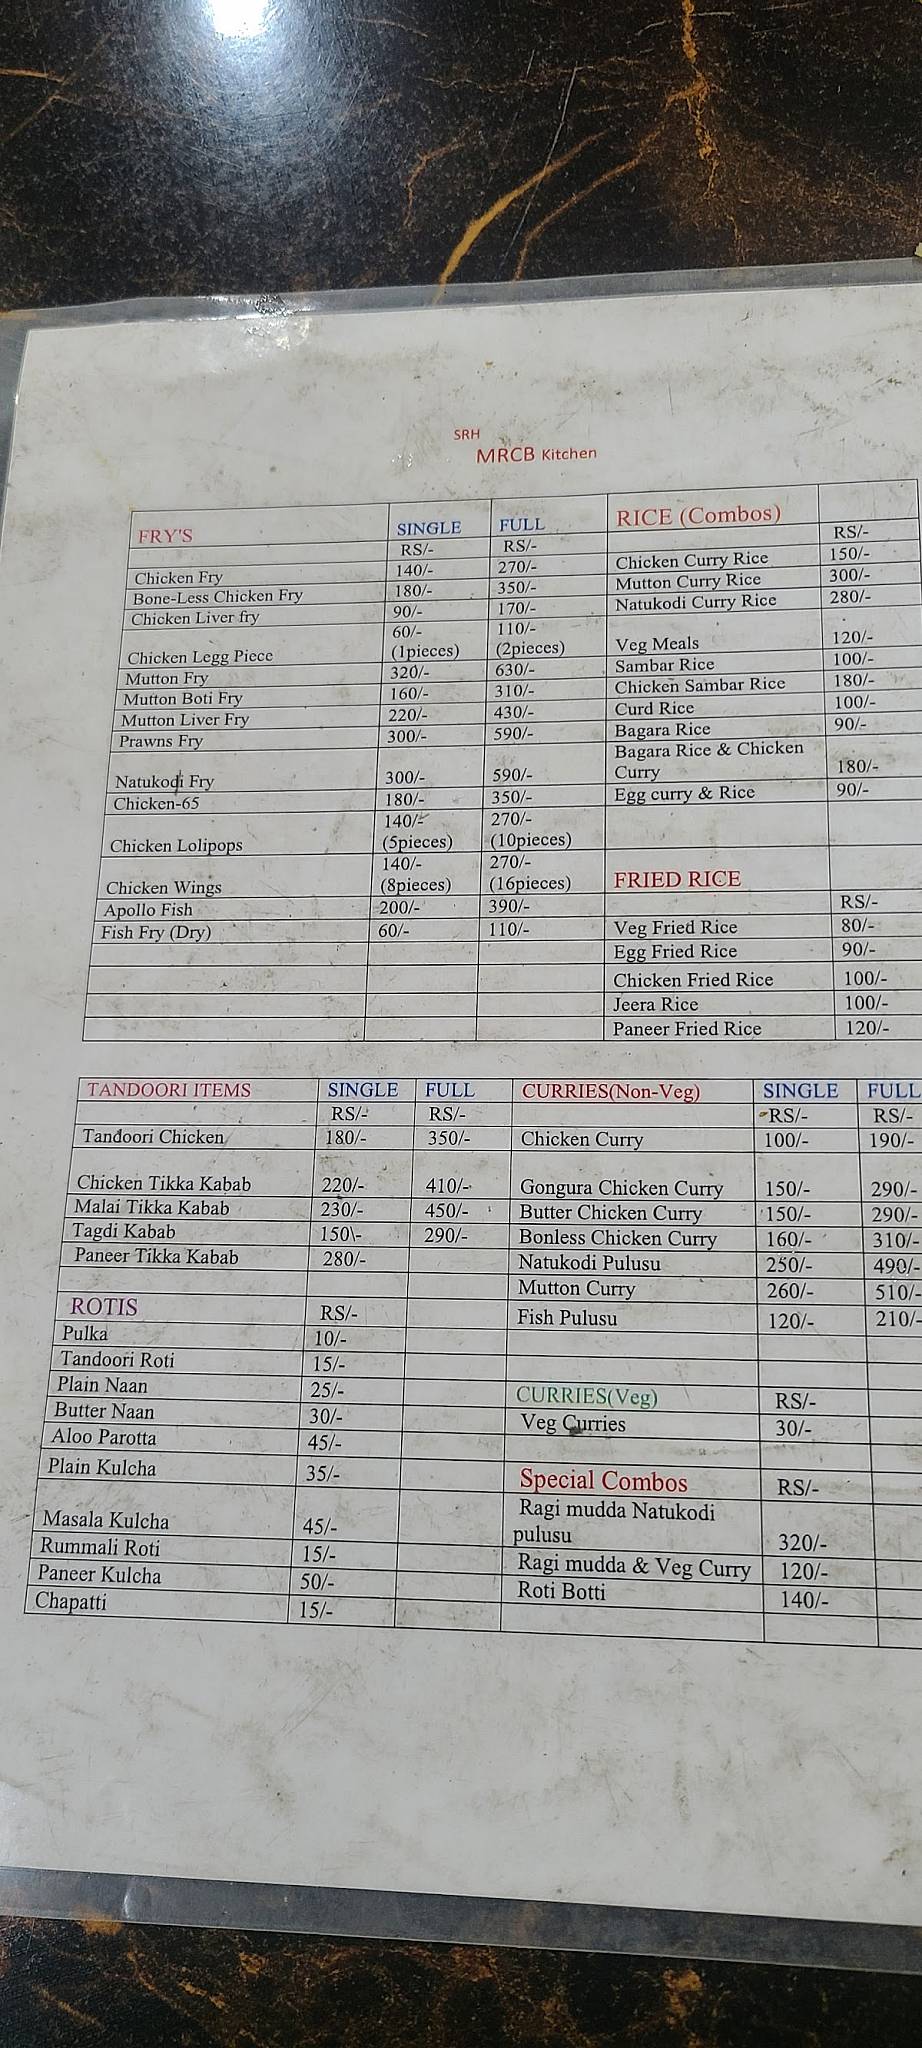 SRH
MRCB Kitchen
FRY'S SINGLE FULL RICE (Combos)
RS/- RS/- RS/-
Chicken Fry 140/- 270/- Chicken Curry Rice 150/-
Bone-Less Chicken Fry 180/- 350/- Mutton Curry Rice 300/-
Chicken Liver fry 90/- 170/- Natukodi Curry Rice 280/-
60/- 110/-
Chicken Legg Piece (1pieces) (2pieces) Veg Meals 120/-
Mutton Fry 320/- 630/- Sambar Rice 100/-
Mutton Boti Fry 160/- 310/- Chicken Sambar Rice 180/-
Mutton Liver Fry 220/- 430/- Curd Rice 100/-
Prawns Fry 300/- 590/- Bagara Rice 90/-
Bagara Rice & Chicken
Natukodi Fry 300/- 590/- Curry 180/-
Chicken-65 180/- 350/- Egg curry & Rice 90/-
140/- 270/-
Chicken Lolipops (5pieces) (10pieces)
140/- 270/-
Chicken Wings (8pieces) (16pieces) FRIED RICE
Apollo Fish 200/- 390/- RS/-
Fish Fry (Dry) 60/- 110/- Veg Fried Rice 80/-
Egg Fried Rice 90/-
Chicken Fried Rice 100/-
Jeera Rice 100/-
Paneer Fried Rice 120/-
TANDOORI ITEMS SINGLE FULL CURRIES(Non-Veg) SINGLE FULL
RS/- RS/- RS/- RS/-
Tandoori Chicken 180/- 350/- Chicken Curry 100/- 190/-
Chicken Tikka Kabab 220/- 410/- Gongura Chicken Curry 150/- 290/-
Malai Tikka Kabab 230/- 450/- Butter Chicken Curry 150/- 290/-
Tagdi Kabab 150\- 290/- Bonless Chicken Curry 160/- 310/-
Paneer Tikka Kabab 280/- Natukodi Pulusu 250/- 490/-
Mutton Curry 260/- 510/-
ROTIS RS/- Fish Pulusu 120/- 210/-
Pulka 10/-
Tandoori Roti 15/-
Plain Naan 25/- CURRIES(Veg) RS/-
Butter Naan 30/- Veg Curries 30/-
Aloo Parotta 45/-
Plain Kulcha 35/- Special Combos RS/-
Ragi mudda Natukodi
Masala Kulcha 45/- pulusu 320/-
Rummali Roti 15/- Ragi mudda & Veg Curry 120/-
Paneer Kulcha 50/- Roti Botti 140/-
Chapatti 15/-